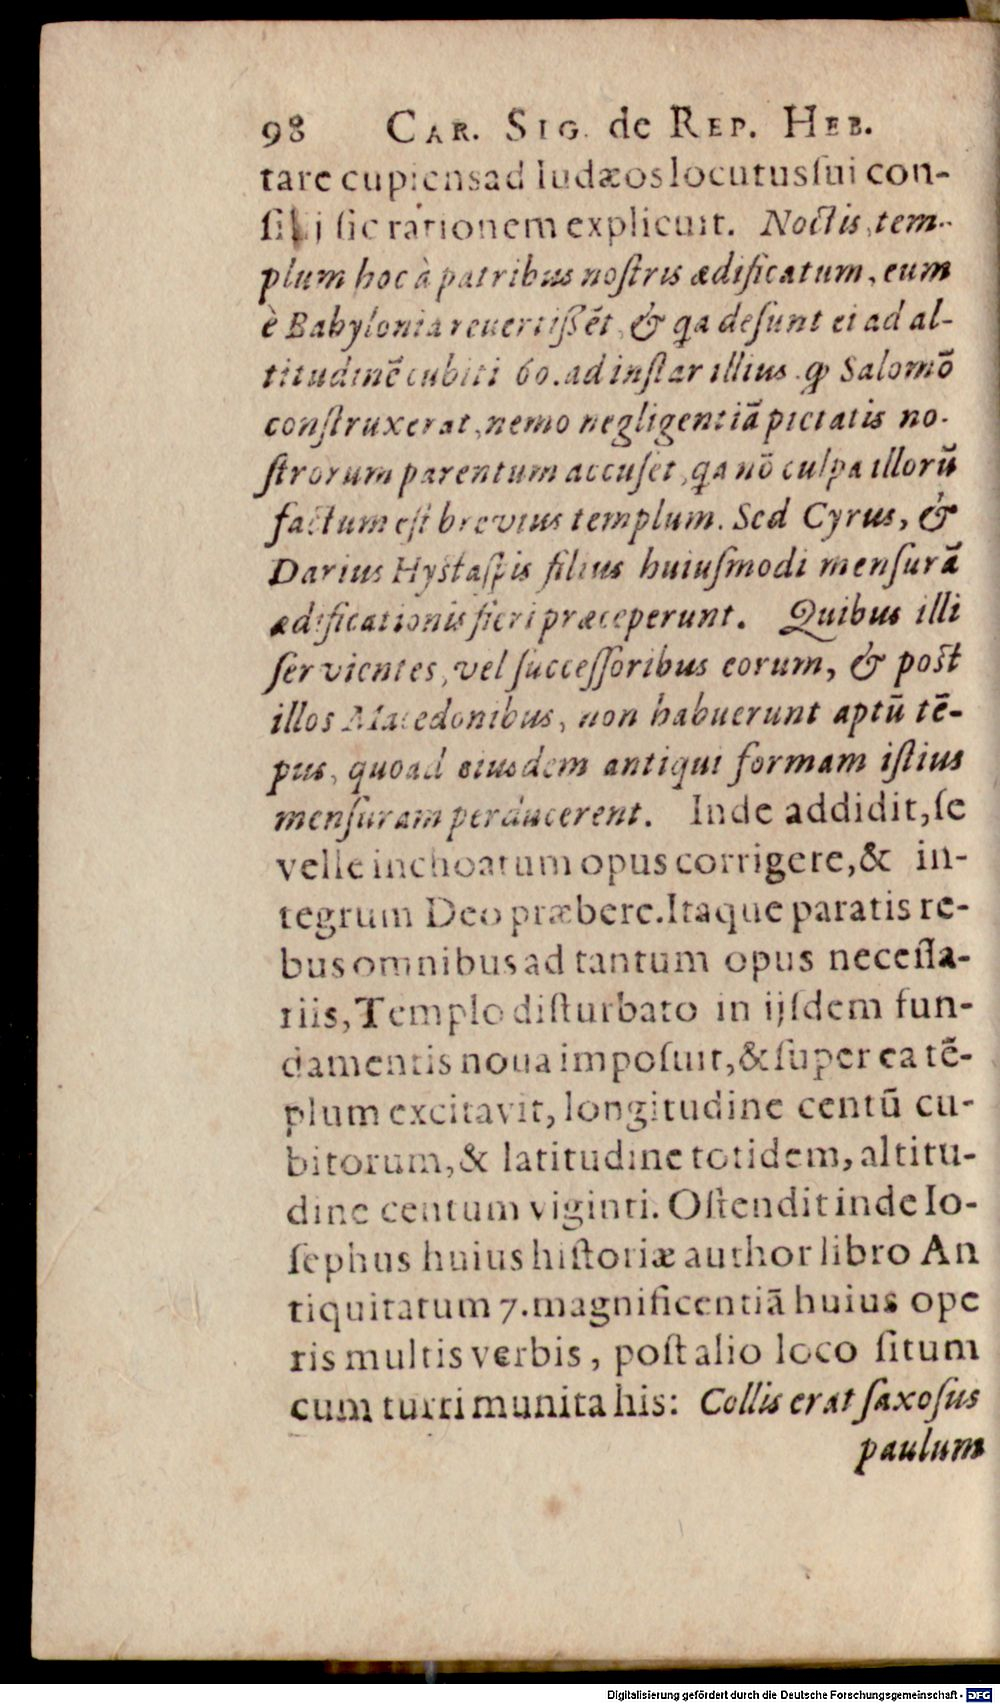 98 CAR. SIG. de REP. HEB.
tare cupiens ad Iudæos locutus ſui con-
ſilij ſic rationem explicuit. Noctis, tem-
plum hoc à patribus noſtris ædificatum, eum
è Babylonia reuertißēt, & qa deſunt ei ad al-
titudinē cubiti 60. ad inſtar illius ꝙ Salomō
conſtruxerat, nemo negligentiā pietatis no-
ſtrorum parentum accuſet, qa nō culpa illorū
factum eſt brevius templum. Sed Cyrus, &
Darius Hyſtaſpis filius huiuſmodi menſurā
ædificationis fieri præceperunt. Quibus illi
ſervientes, vel ſucceſſoribus eorum, & poſt
illos Macedonibus, non habuerunt aptū tē-
pus, quoad eiusdem antiqui formam iſtius
menſuram perducerent. Inde addidit, ſe
velle inchoatum opus corrigere, & in-
tegrum Deo præbere. Itaque paratis re-
bus omnibus ad tantum opus neceſſa-
riis, Templo diſturbato in ijſdem fun-
damentis noua impoſuit, & ſuper ea tē-
plum excitavit, longitudine centū cu-
bitorum, & latitudine totidem, altitu-
dine centum viginti. Oſtendit inde Io-
ſephus huius hiſtoriæ author libro An
tiquitatum 7. magnificentiā huius ope
ris multis verbis, poſt alio loco ſitum
cum turri munita his: Collis erat ſaxoſus
paulum
Digitalisierung gefördert durch die Deutsche Forschungsgemeinschaft - DFG